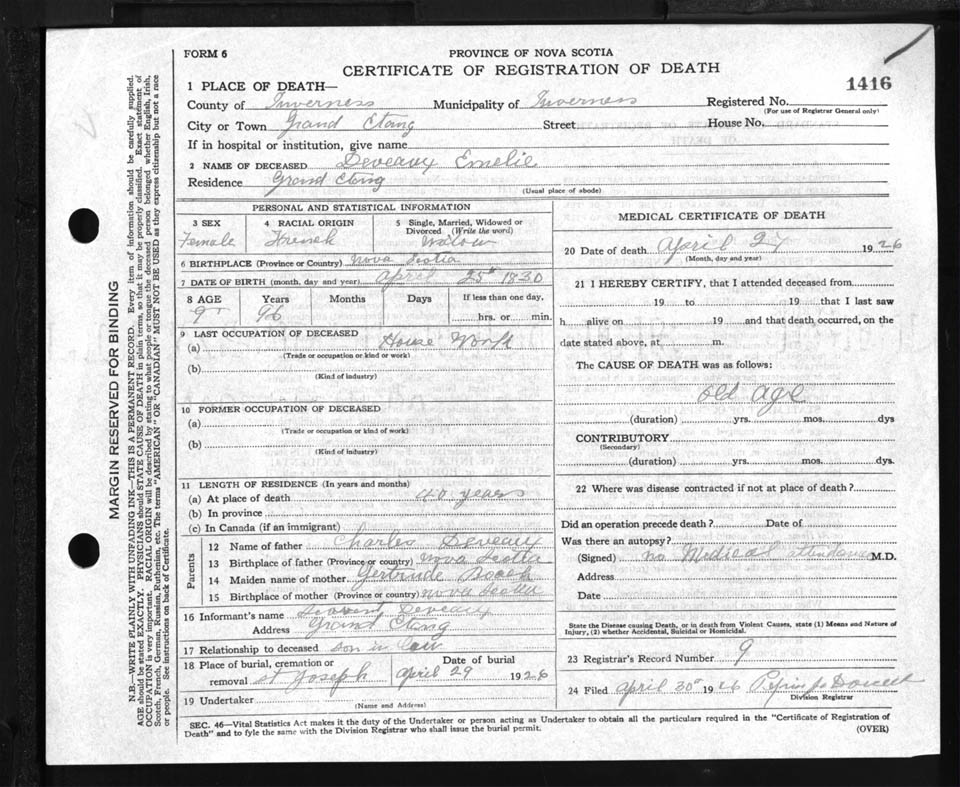 FORM 6
PROVINCE OF NOVA SCOTIA
CERTIFICATE OF REGISTRATION OF DEATH
1416
1 PLACE OF DEATH—
County of Inverness Municipality of Inverness Registered No.
(For use of Registrar General only)
City or Town Grand Etang Street House No.
If in hospital or institution, give name
2 NAME OF DECEASED Deveaux Emelie
Residence Grand Etang
(Usual place of abode)
PERSONAL AND STATISTICAL INFORMATION
3 SEX 4 RACIAL ORIGIN 5 Single, Married, Widowed or Divorced (Write the word)
Female French Widow
6 BIRTHPLACE (Province or Country) Nova Scotia
7 DATE OF BIRTH (month, day and year) April 25th 1830
8 AGE Years Months Days If less than one day,
96 hrs. or min.
9 LAST OCCUPATION OF DECEASED
(a) House Work
(Trade or occupation or kind or work)
(b)
(Kind of industry)
10 FORMER OCCUPATION OF DECEASED
(a)
(Trade or occupation or kind of work)
(b)
(Kind of industry)
11 LENGTH OF RESIDENCE (In years and months)
(a) At place of death 40 years
(b) In province
(c) In Canada (if an immigrant)
Parents
12 Name of father Charles Deveaux
13 Birthplace of father (Province or country) Nova Scotia
14 Maiden name of mother Gertrude
15 Birthplace of mother (Province or country) Nova Scotia
16 Informant's name Deveaux
Address Grand Etang
17 Relationship to deceased son in law
18 Place of burial, cremation or removal St Joseph
Date of burial
April 29 1926
19 Undertaker
(Name and Address)
MEDICAL CERTIFICATE OF DEATH
20 Date of death April 27 1926
(Month, day and year)
21 I HEREBY CERTIFY, that I attended deceased from
19 to 19 that I last saw
h alive on 19 and that death occurred, on the
date stated above, at m.
The CAUSE OF DEATH was as follows:
old age
(duration) yrs. mos. dys
CONTRIBUTORY
(Secondary)
(duration) yrs. mos. dys.
22 Where was disease contracted if not at place of death?
Did an operation precede death? Date of
Was there an autopsy?
(Signed) no Medical attendance M.D.
Address
Date
State the Disease causing Death, or in death from Violent Causes, state (1) Means and Nature of
Injury, (2) whether Accidental, Suicidal or Homicidal.
23 Registrar's Record Number 9
24 Filed April 30th 1926
Division Registrar
SEC. 46—Vital Statistics Act makes it the duty of the Undertaker or person acting as Undertaker to obtain all the particulars required in the "Certificate of Registration of
Death" and to fyle the same with the Division Registrar who shall issue the burial permit.
(OVER)
MARGIN RESERVED FOR BINDING
N.B.—WRITE PLAINLY WITH UNFADING INK—THIS IS A PERMANENT RECORD. Every item of information should be carefully supplied.
AGE should be stated EXACTLY. PHYSICIANS should STATE CAUSE OF DEATH in plain terms, so that it may be properly classified. Exact statement of
OCCUPATION is very important. RACIAL ORIGIN will be described by stating to what people or tongue the deceased person belonged whether English, Irish,
Scotch, French, German, Russian, Ruthenian, etc. The terms "AMERICAN" OR "CANADIAN" MUST NOT BE USED as they express citizenship but not a race
or people. See instructions on back of Certificate.